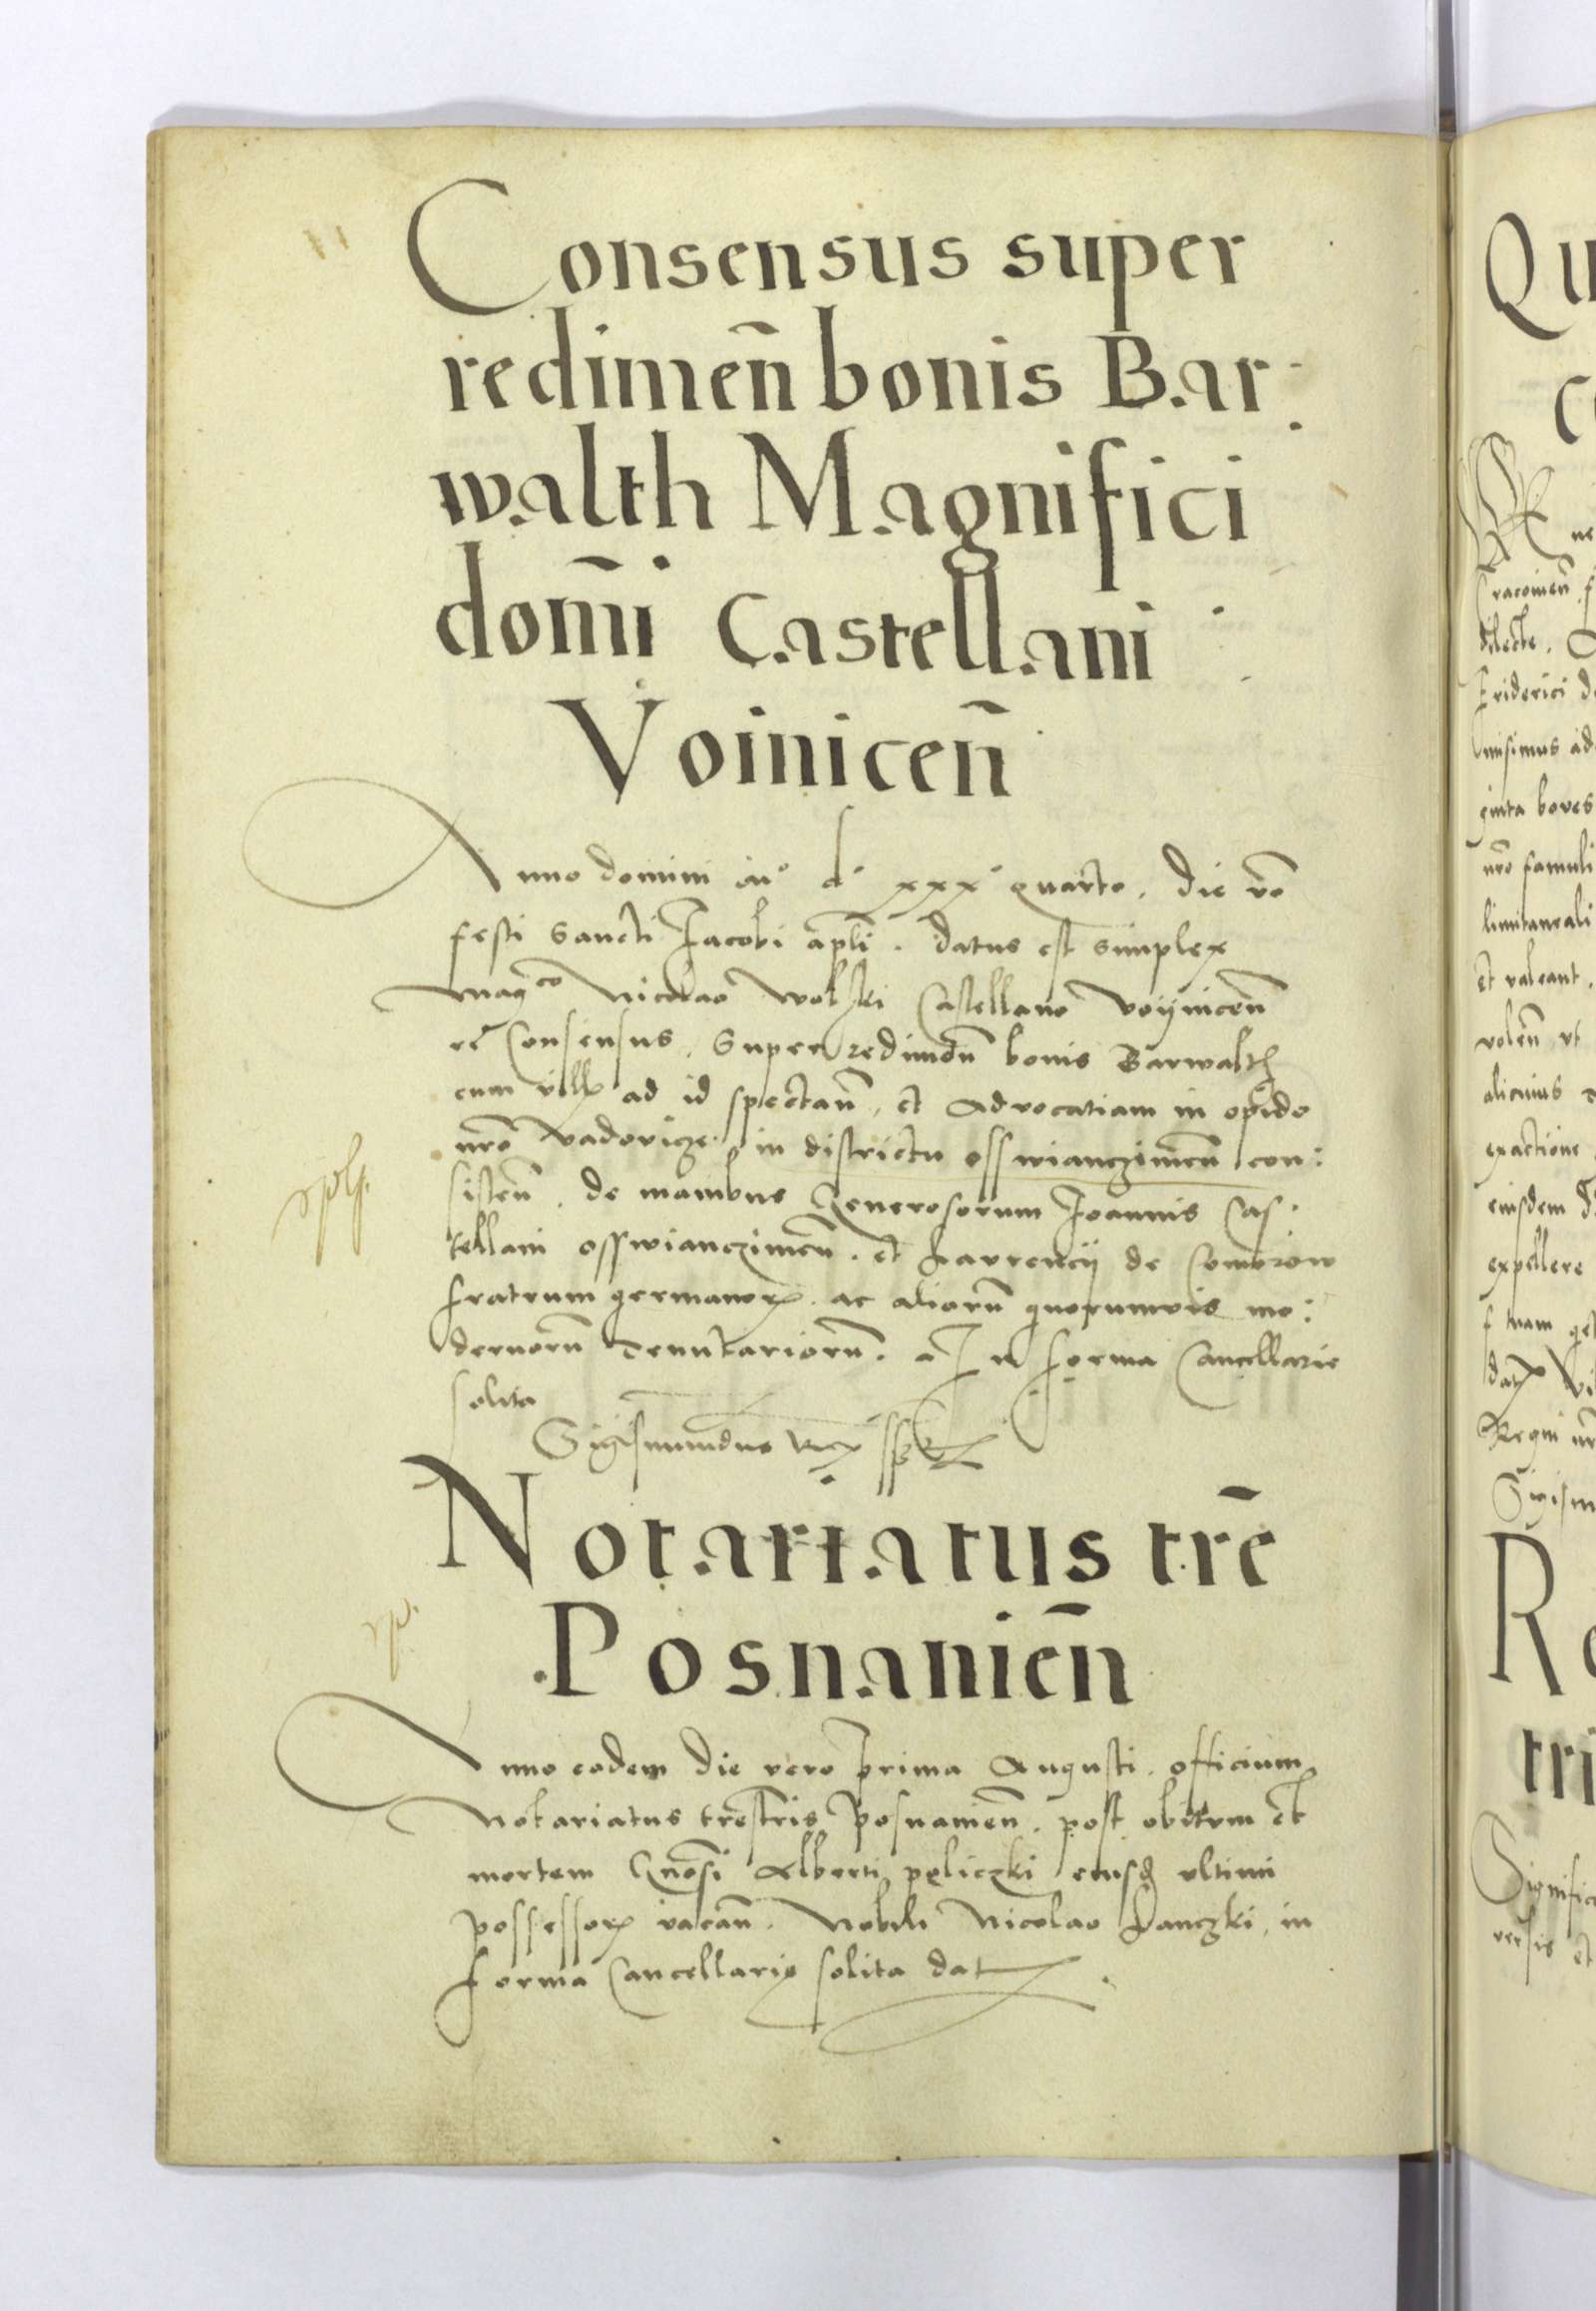 Consensus super
redimen̄ bonis Bar
walth Magnifici
domī Castellani
Voinicen̄
Anno domini mº dº xxxº quarto. die vo
festi Sancti Jacobi apli. datus est simplex
Magco Nicolao Wolski Castellano Voÿnicen̄
Consensus. Super redimen̄ bonis Barwalth
cum villis ad id spectan̄. et Advocatiam in opido
nro Vadovicze in districtu osswianczimen̄ con:
sisten̄. de manibus Generosorum Joannis Cas:
tellani osswianczimen̄. et Laurencij de Comorow
fratrum germanorum. ac aliorū quorumvis mo:
dernorū tenutariorū. In forma Cancellarie
solita
Sigismundus Rex sspt
Notariatus trē
Posnanien̄
Anno eodem die vero prima Augusti. officium
Notariatus trestris Posnanien̄. post obitum et
mortem Gnosi Alberti pęliczki eiusd ultimi
possessoris vacan̄. Nobili Nicolao Danczki in
forma Cancellarię solita dat
Qu
ne
Cracovien̄
dilecte.
Friderici
misimus ad
ginta boves
nro famuli
limitaneali
et valeant.
volen̄ ut
alicuius
exactione
eiusdem
expellere
Regni
Sigism
R
tri
Signific
versis et